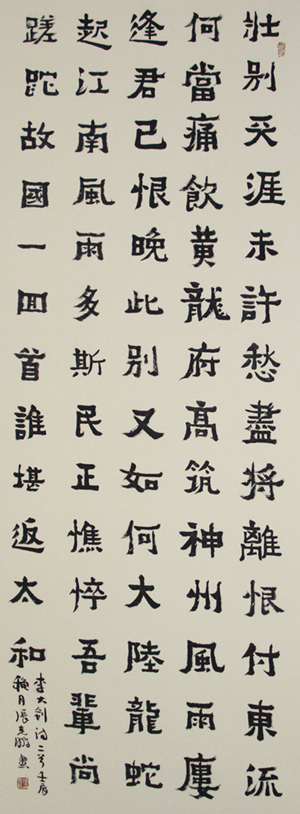 壯別天涯未許愁盡將離恨付東流
何當痛飲黃龍府高筑神州風雨廔
逢君已恨晚此別又如何大陸龍蛇
起江南風雨多斯民正憔悴吾輩尚
蹉跎故國一回首誰堪返太和
李大釗詩二首壬辰
穐月張志書